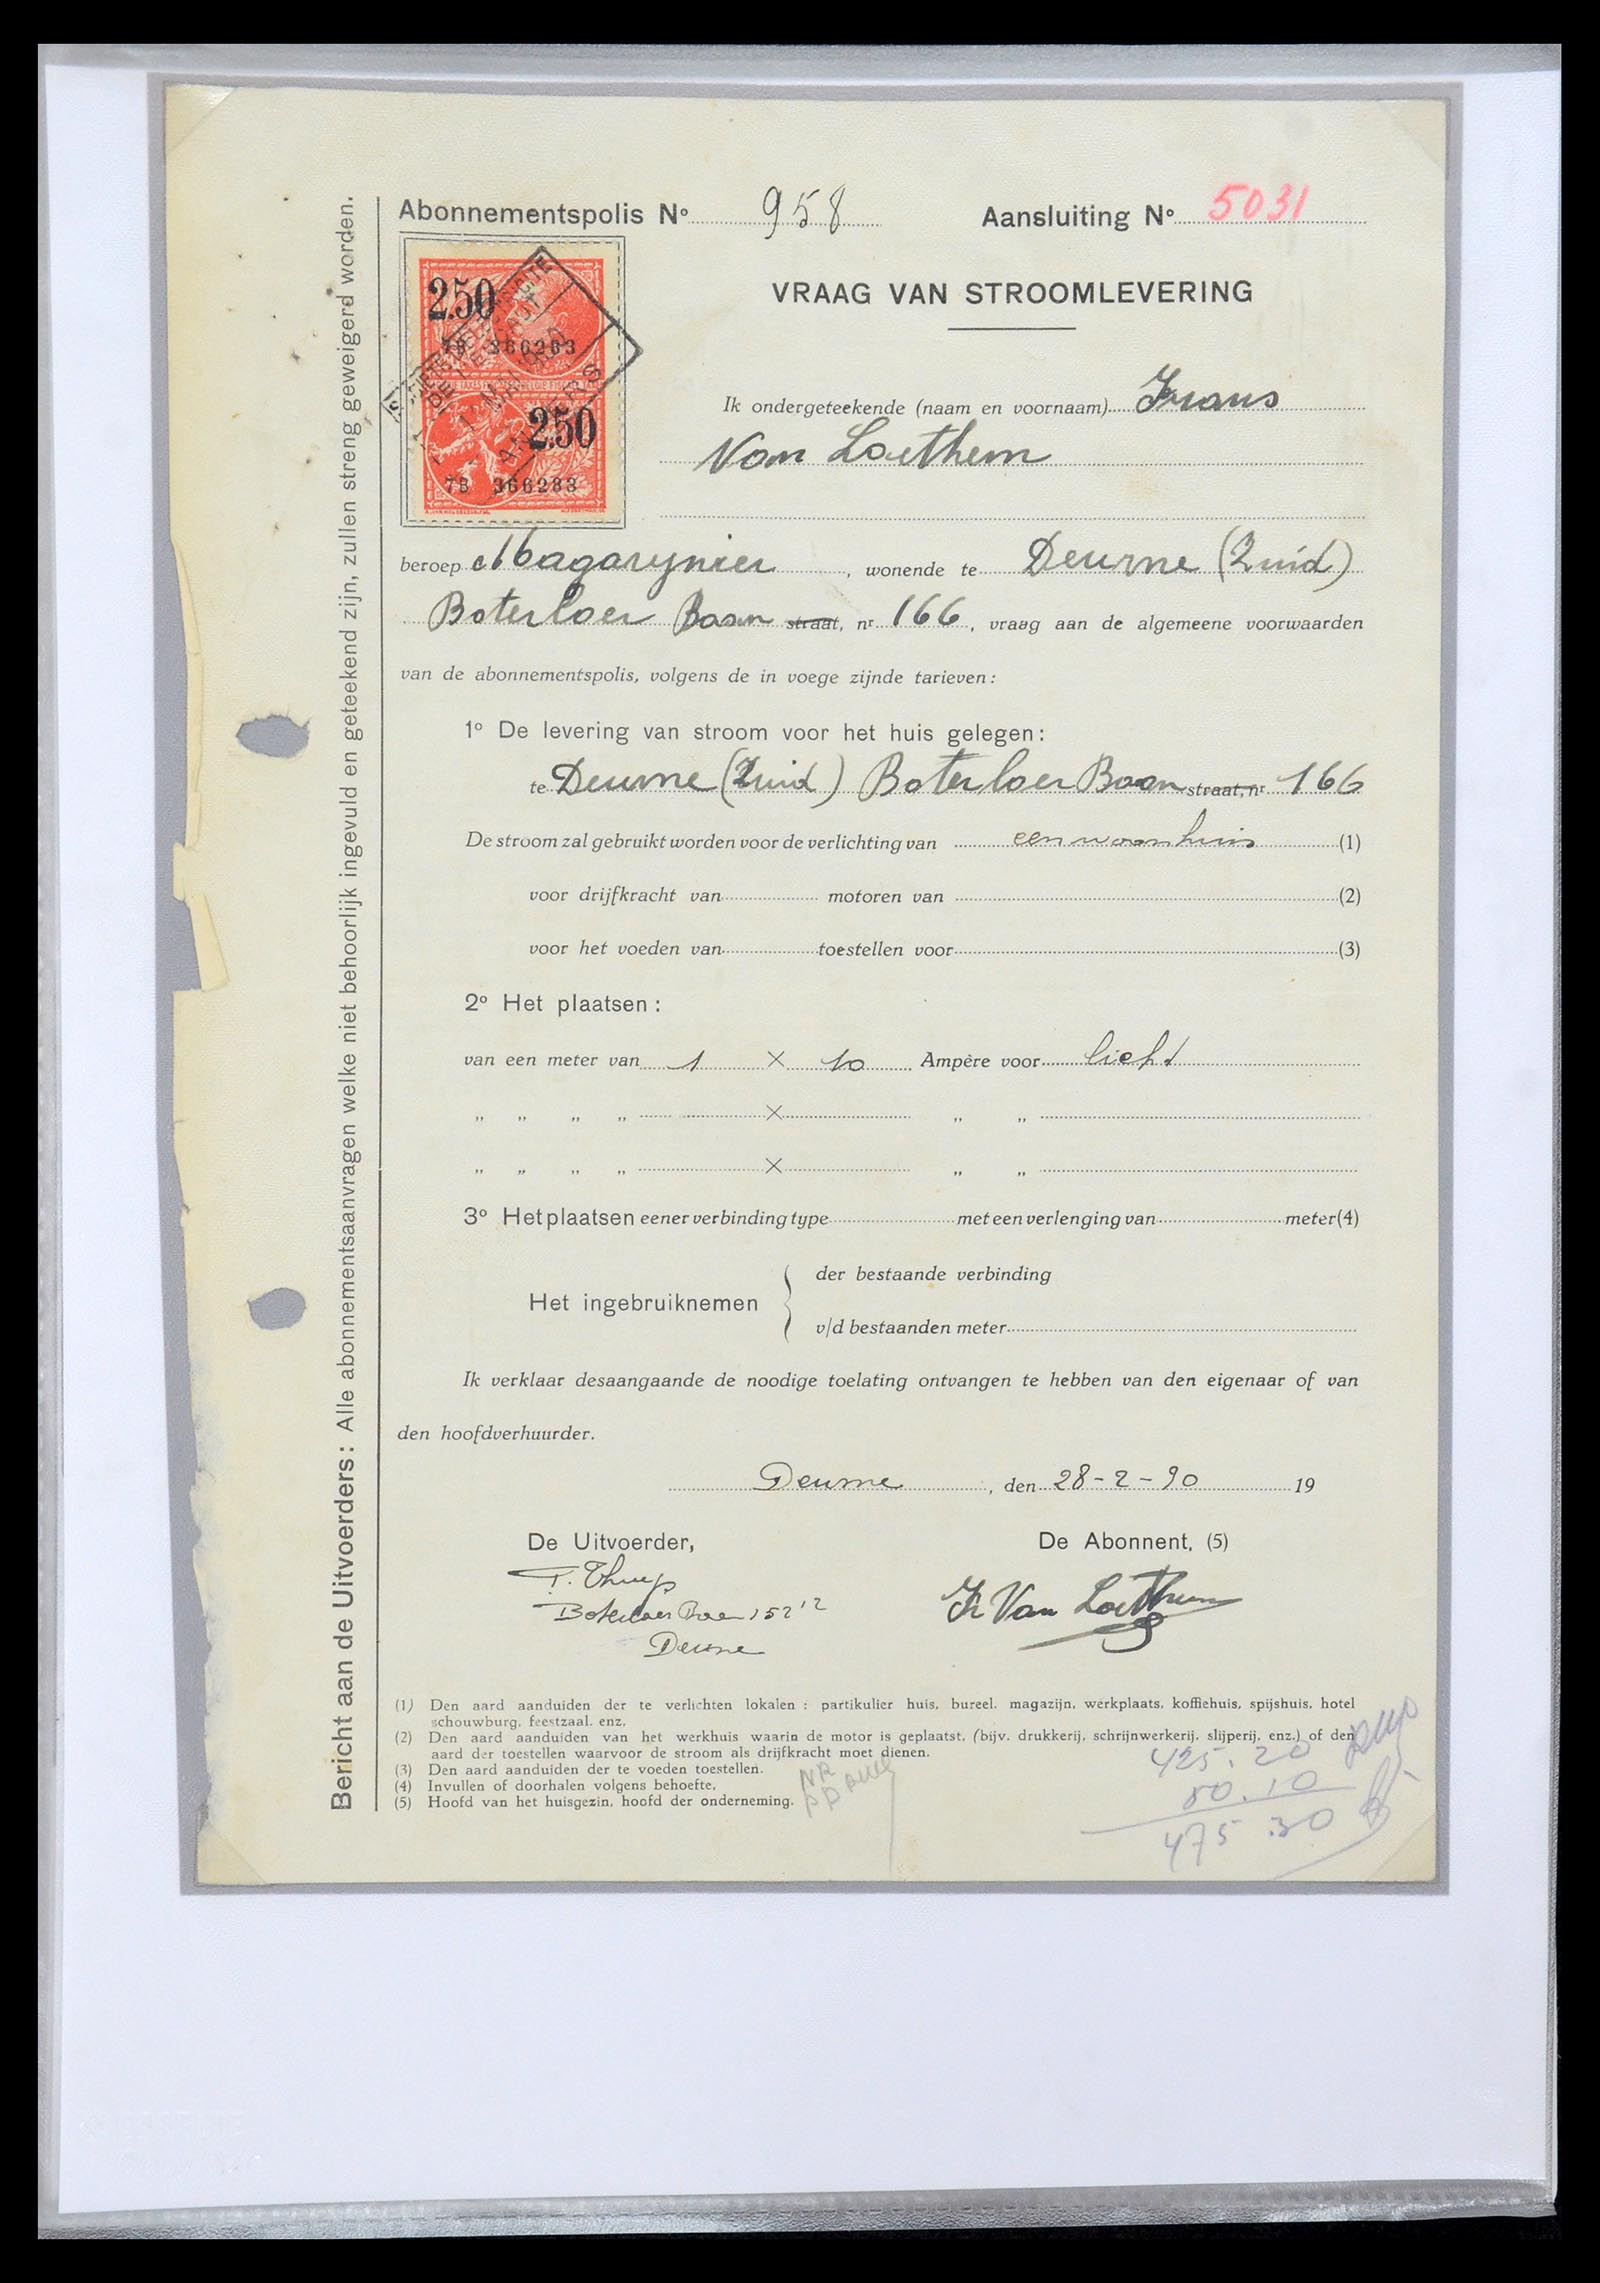 Abonnementspolis Nº 958 Aansluiting Nº 5031
VRAAG VAN STROOMLEVERING
2.50
7B 366283
2.50
7B 366283
Ik ondergeteekende (naam en voornaam) Frans
Van Loethem
beroep Magazynier, wonende te Deurne (Zuid)
Boterlaer Baan straat, nr 166, vraag aan de algemeene voorwaarden
van de abonnementspolis, volgens de in voege zijnde tarieven:
1º De levering van stroom voor het huis gelegen:
te Deurne (Zuid) Boterlaer Baan straat, nr 166
De stroom zal gebruikt worden voor de verlichting van een woonhuis (1)
voor drijfkracht van motoren van (2)
voor het voeden van toestellen voor (3)
2º Het plaatsen:
van een meter van 1 × 10 Ampère voor licht
„ „ „ „ × „ „
„ „ „ „ × „ „
3º Het plaatsen eener verbinding type met een verlenging van meter (4)
der bestaande verbinding
Het ingebruiknemen
v/d bestaanden meter
Ik verklaar desaangaande de noodige toelating ontvangen te hebben van den eigenaar of van
den hoofdverhuurder.
Deurne, den 28-2-30 19
De Uitvoerder, De Abonnent, (5)
Boterlaer Baan 152
Fr Van Loethem
Deurne
(1) Den aard aanduiden der te verlichten lokalen : partikulier huis, bureel, magazijn, werkplaats, koffiehuis, spijshuis, hotel
schouwburg, feestzaal, enz.
(2) Den aard aanduiden van het werkhuis waarin de motor is geplaatst, (bijv. drukkerij, schrijnwerkerij, slijperij, enz.) of den
aard der toestellen waarvoor de stroom als drijfkracht moet dienen.
(3) Den aard aanduiden der te voeden toestellen.
(4) Invullen of doorhalen volgens behoefte.
(5) Hoofd van het huisgezin, hoofd der onderneming.
425.20
50.10
475.30
Bericht aan de Uitvoerders: Alle abonnementsaanvragen welke niet behoorlijk ingevuld en geteekend zijn, zullen streng geweigerd worden.